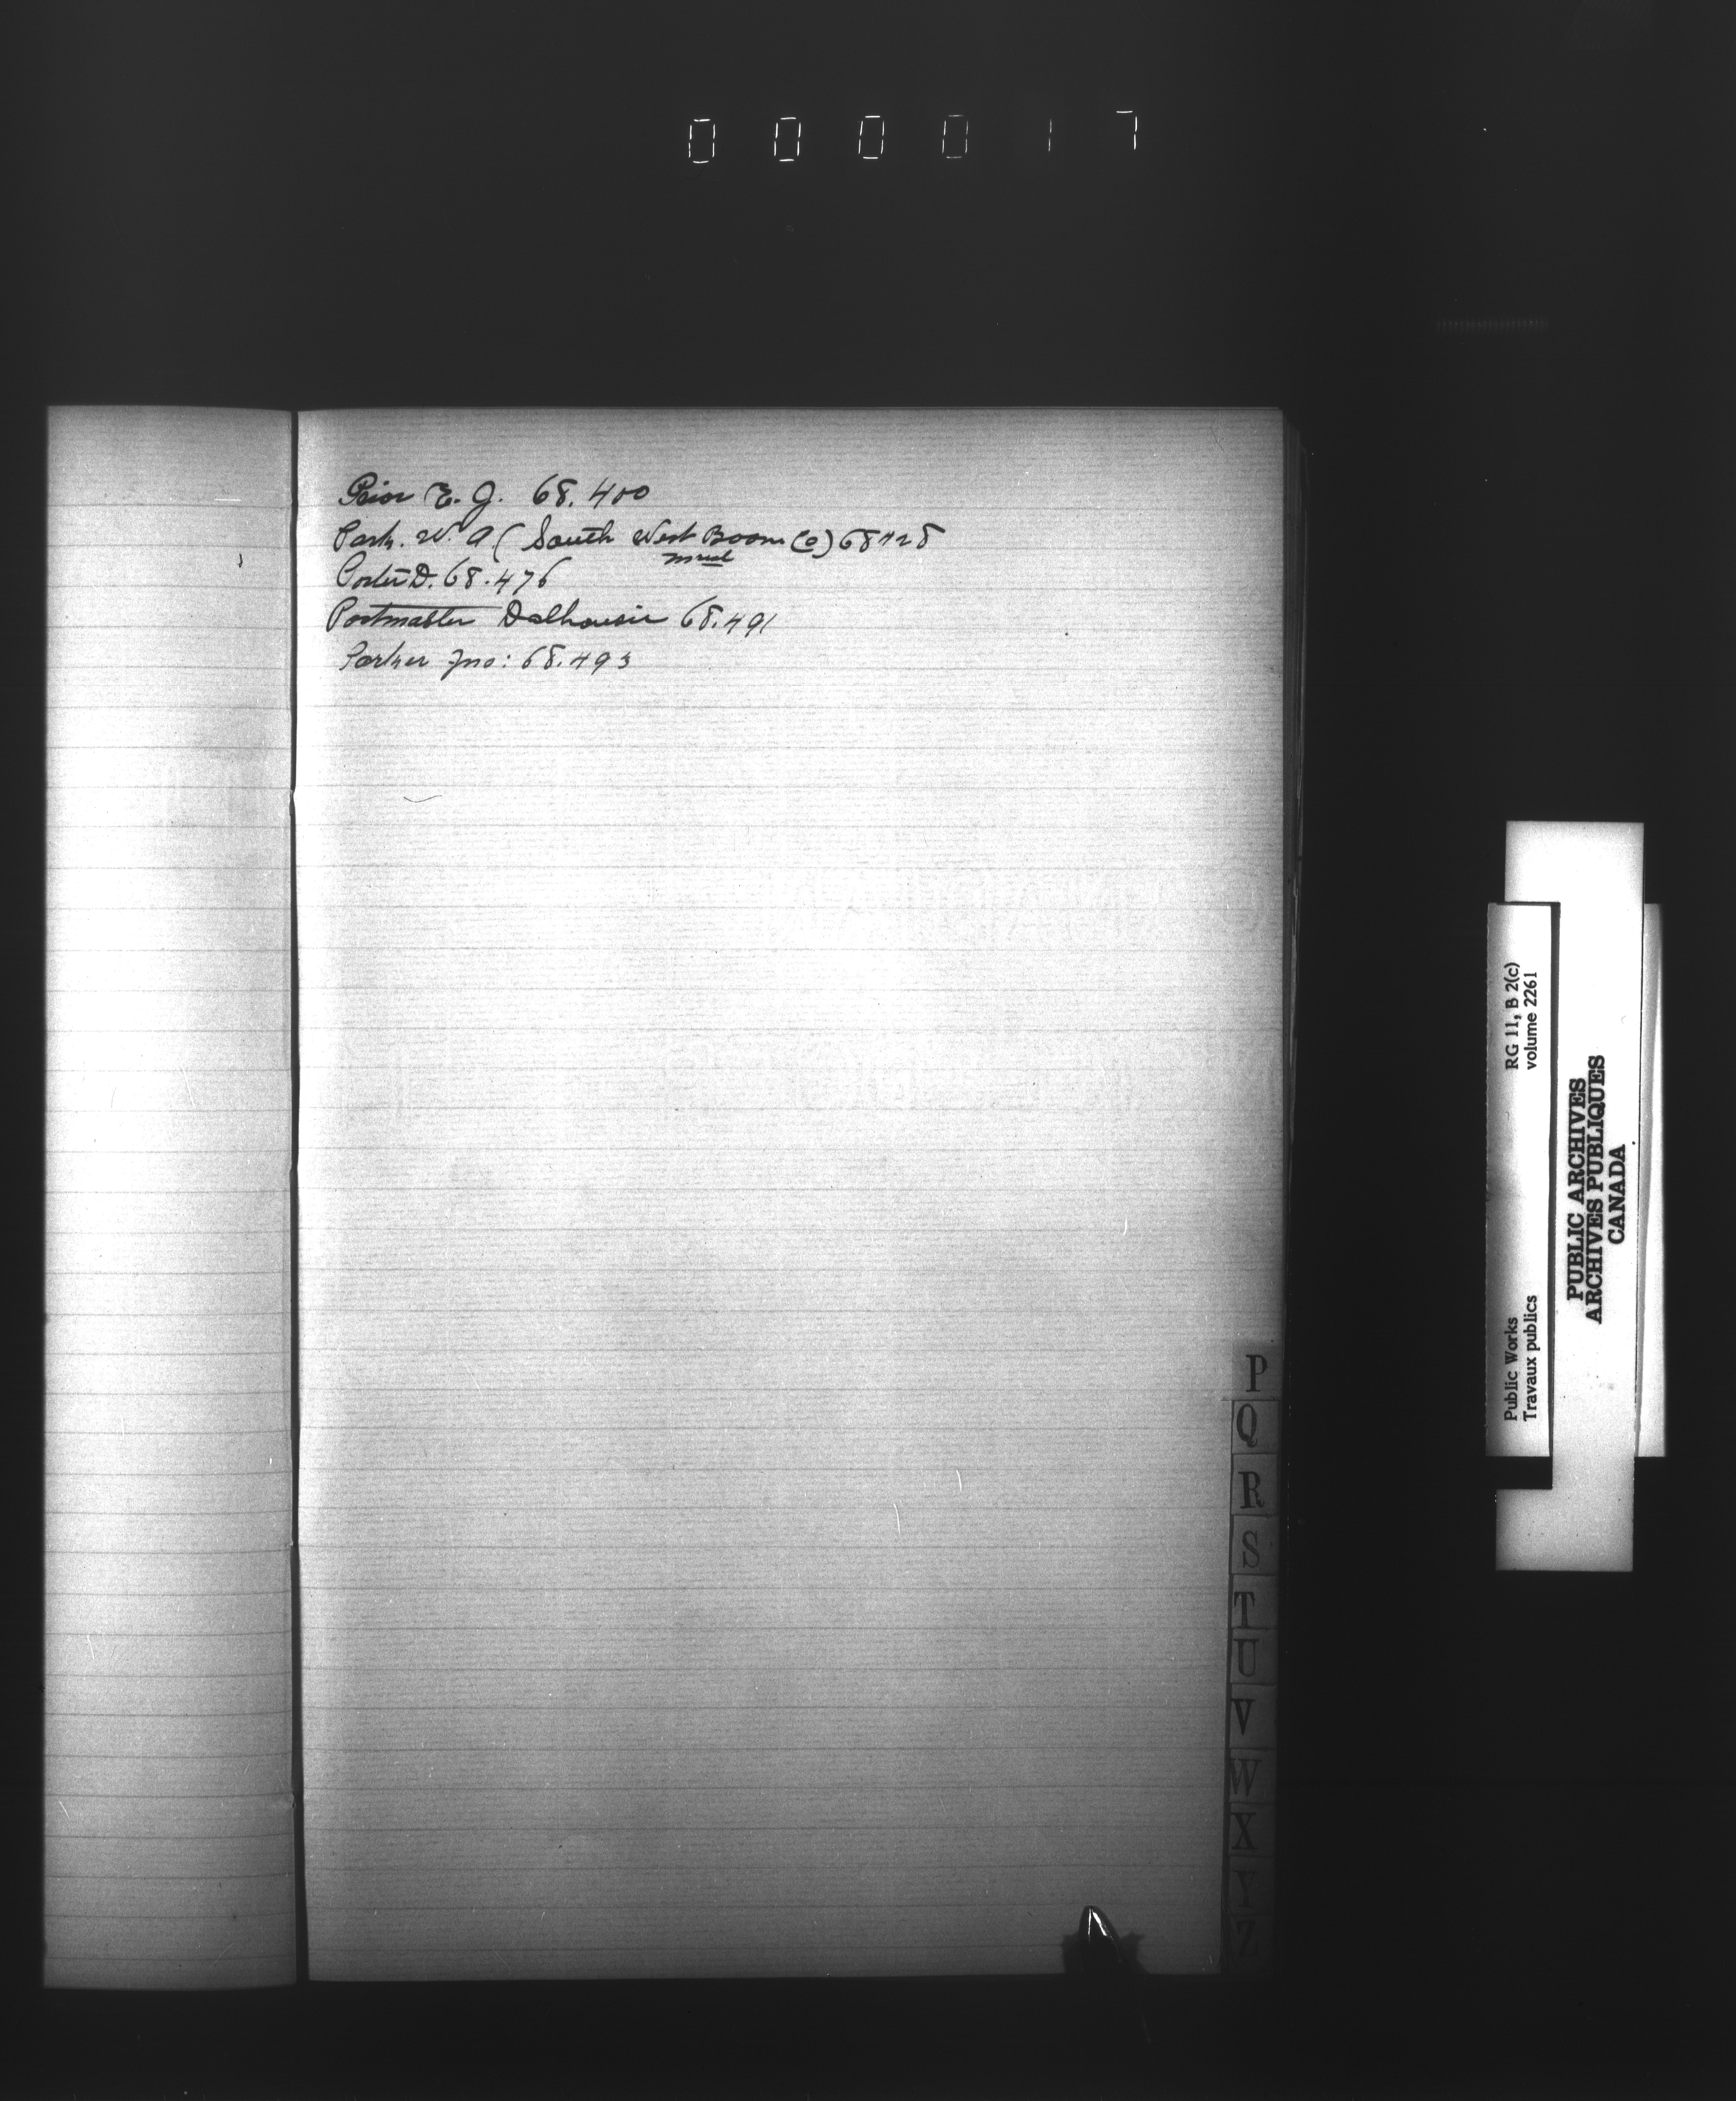 000017
Prior E. J. 68.400
Park. W. A. (South West Boom Co) 68428
Porter D. 68.476
Postmaster Dalhousie 68.491
Parker Jno: 68.493
P
Q
R
S
T
U
V
W
X
Y
Z
RG 11, B 2(c)
volume 2261
Public Works
Travaux publics
PUBLIC ARCHIVES
ARCHIVES PUBLIQUES
CANADA